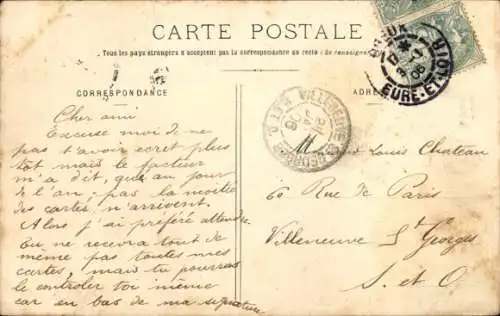 CARTE POSTALE
Tous les pays étrangers n'acceptent pas la correspondance au recto
CORRESPONDANCE
Cher ami
Excuse moi de ne
pas t'avoir ecrit plus
tôt mais le facteur
m'a dit, que au jour
de l'an, pas la moitié
des cartes n'arrivent.
Alors j'ai préféré attendre
Tu ne recevra tout de
même pas toutes mes
cartes, mais tu pourras
le controler toi même
car en bas de ma signature
DREUX
EURE-ET-LOIR
VILLENEUVE ST GEORGES
Monsieur Louis Chateau
60 Rue de Paris
Villeneuve St Georges
S. et O